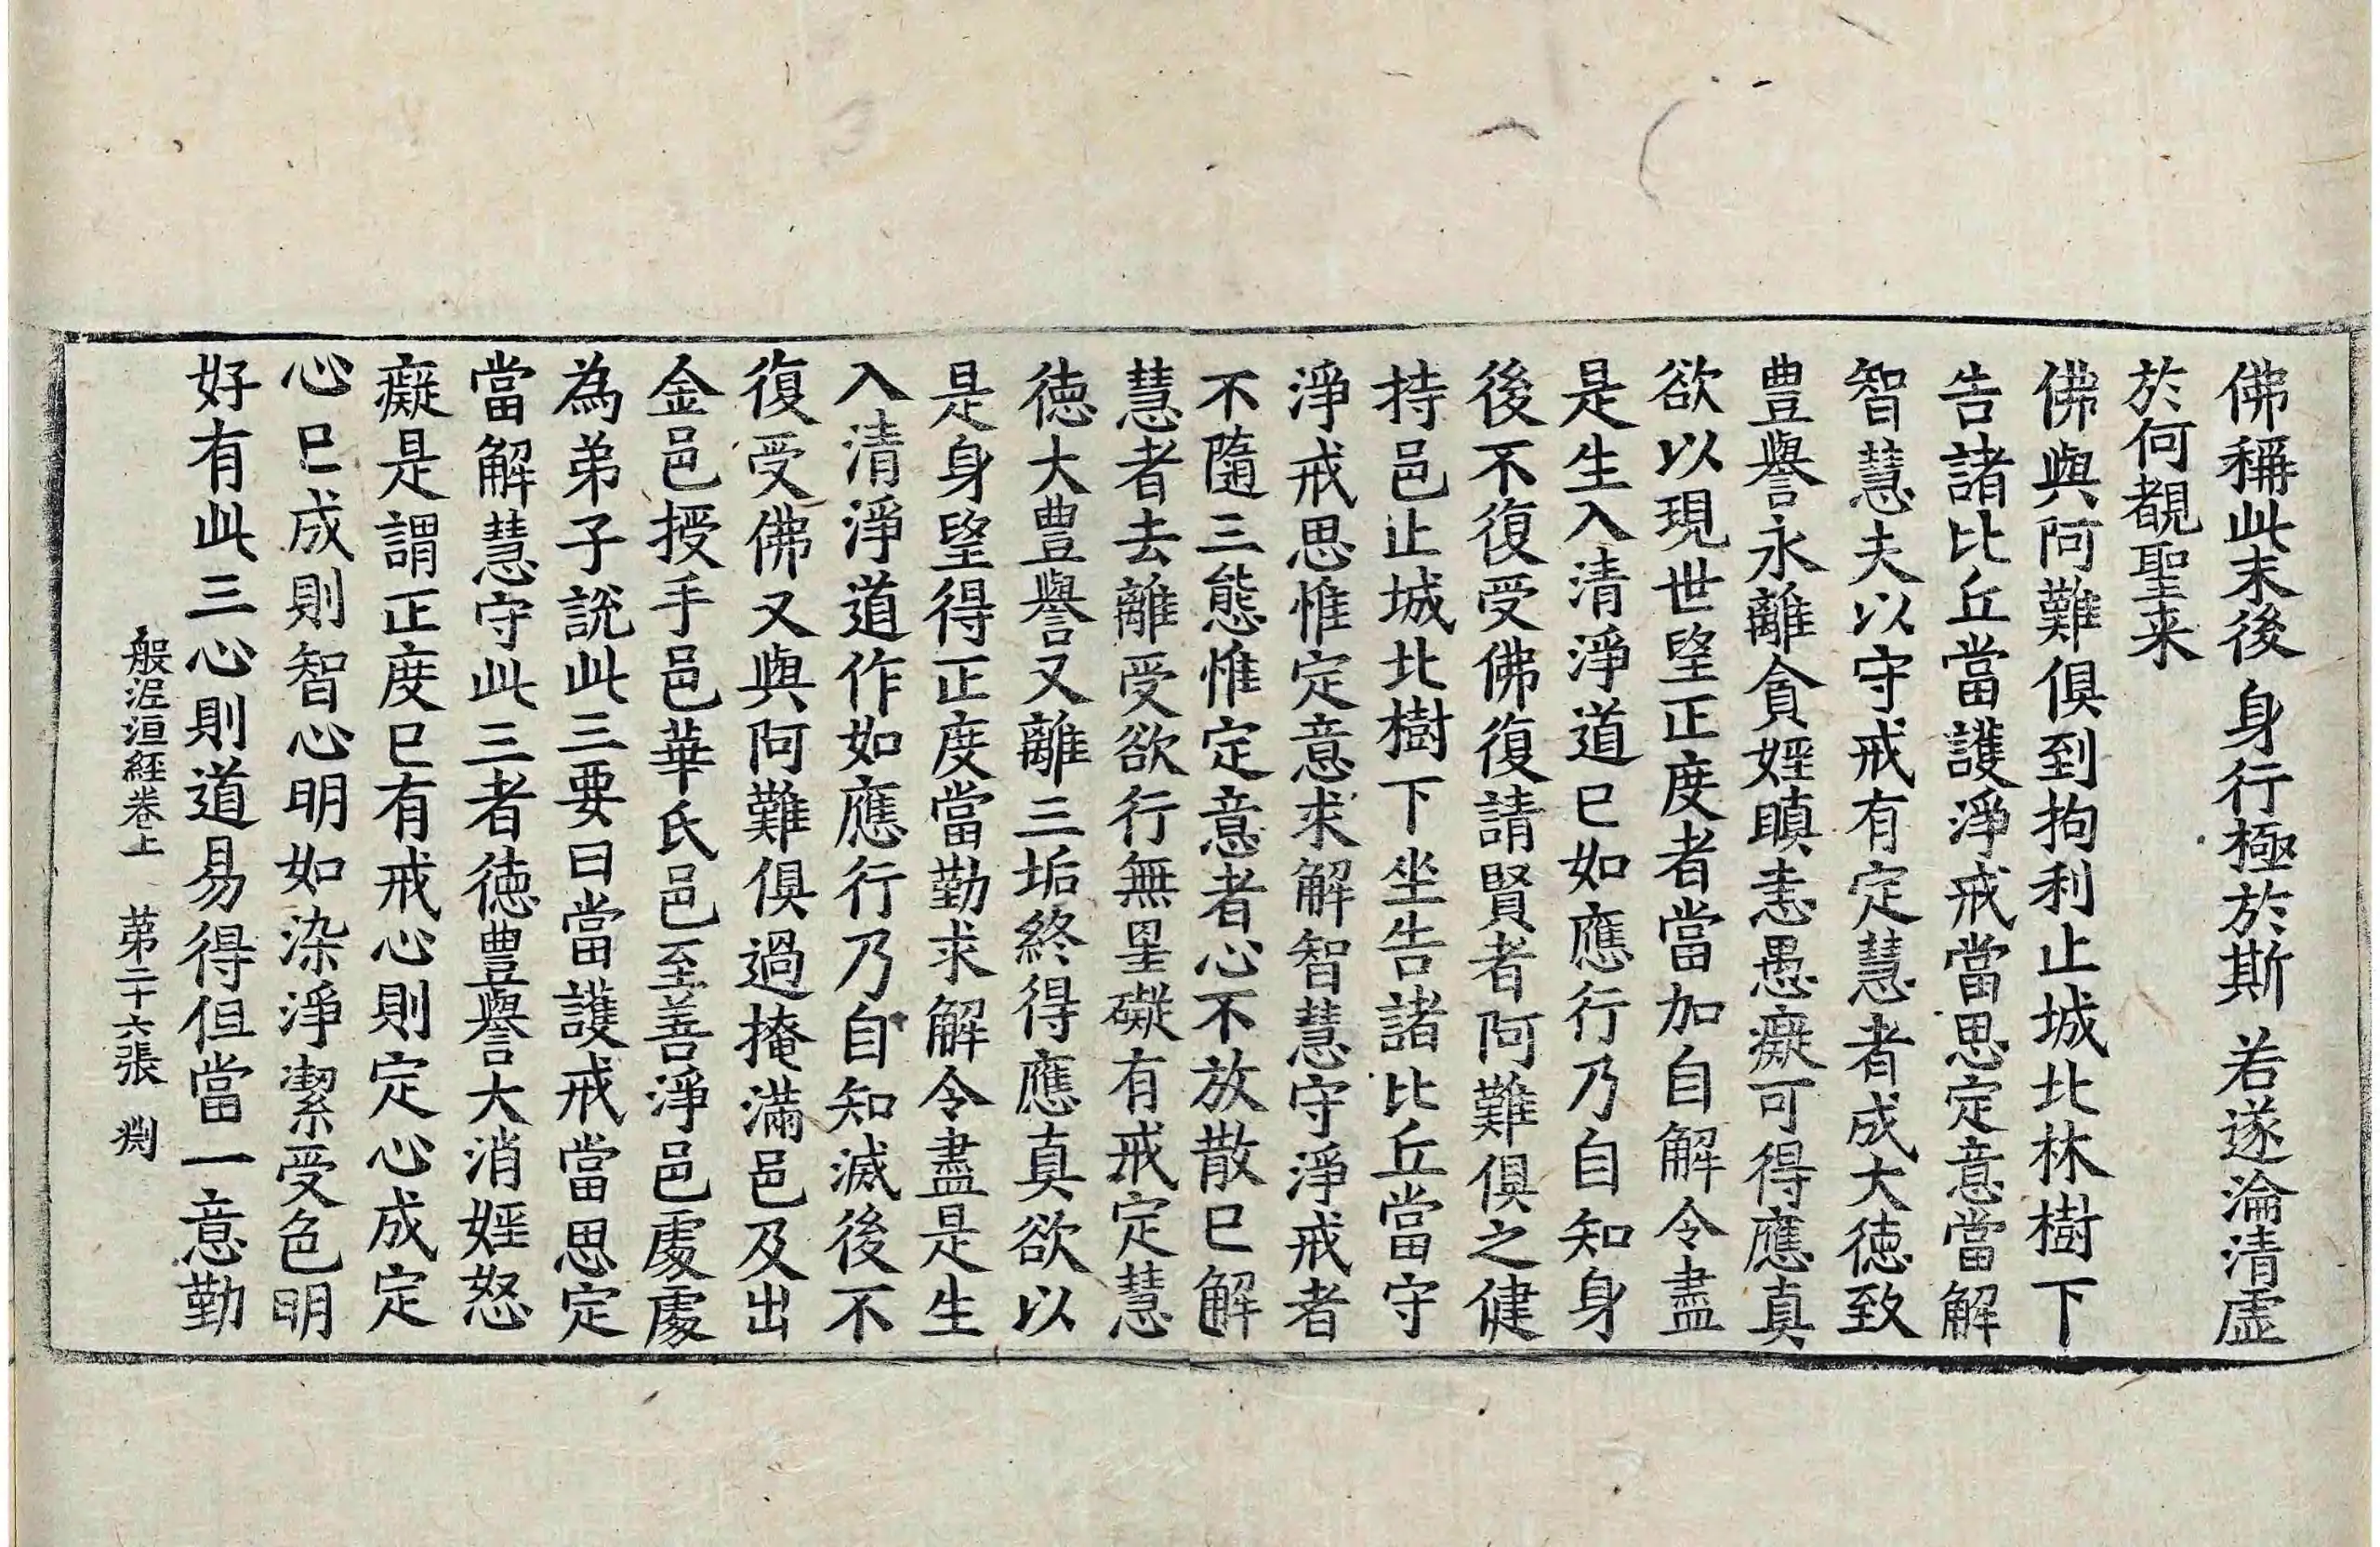 佛稱此末後　身行極於斯　若遂淪清虛
於何覩聖来
佛與阿難俱到拘利止城北林樹下
告諸比丘當護淨戒當思定意當解
智慧夫以守戒有定慧者成大徳致
豊譽永離貪婬瞋恚愚癡可得應真
欲以現世望正度者當加自解令盡
是生入清淨道已如應行乃自知身
後不復受佛復請賢者阿難俱之健
持邑止城北樹下坐告諸比丘當守
淨戒思惟定意求解智慧守淨戒者
不隨三態惟定意者心不放散已解
慧者去離受欲行無罣礙有戒定慧
徳大豊譽又離三垢終得應真欲以
是身望得正度當勤求解令盡是生
入清淨道作如應行乃自知滅後不
復受佛又與阿難俱過掩滿邑及出
金邑授手邑華氏邑至善淨邑處處
為弟子說此三要曰當護戒當思定
當解慧守此三者徳豊譽大消婬怒
癡是謂正度已有戒心則定心成定
心已成則智心明如染淨潔受色明
好有此三心則道易得但當一意勤
般泥洹経卷上　苐二十六張